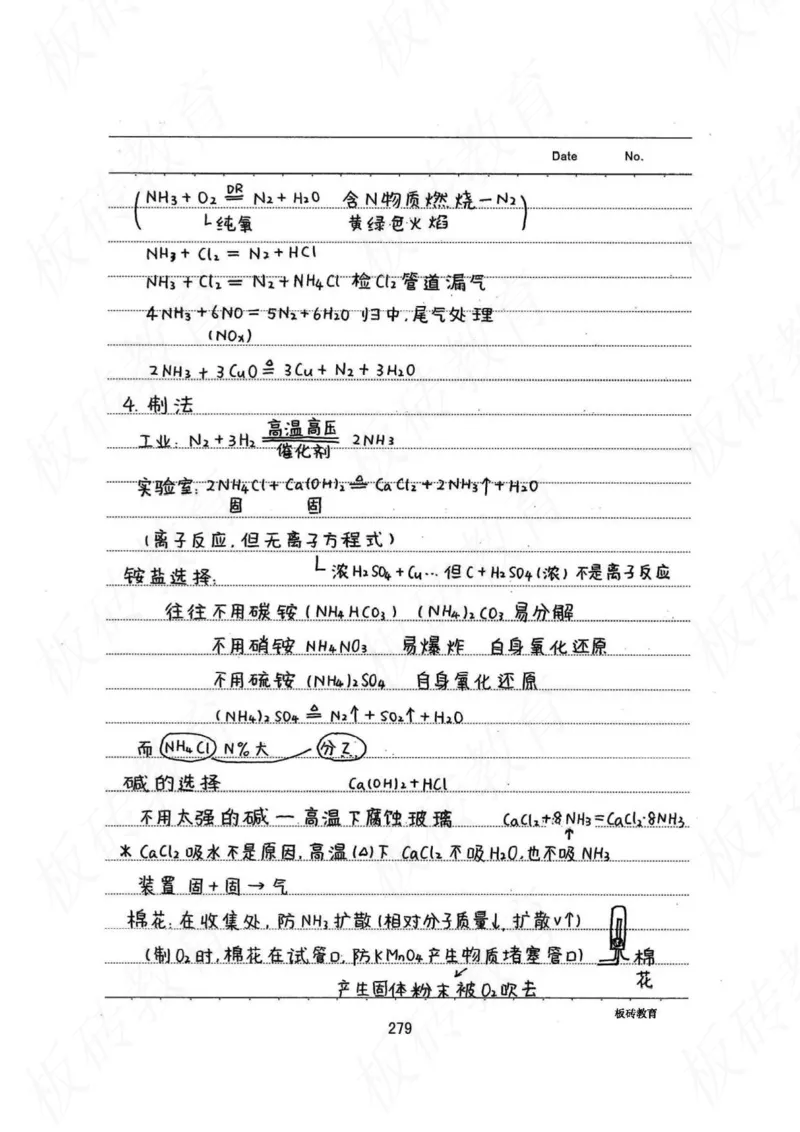 Date No.
(NH₃ + O₂ DR= N₂ + H₂O 含N物质燃烧—N₂)
└纯氧 黄绿色火焰
NH₃ + Cl₂ = N₂ + HCl
NH₃ + Cl₂ = N₂ + NH₄Cl 检Cl₂管道漏气
4NH₃ + 6NO = 5N₂ + 6H₂O 归中,尾气处理
(NOx)
2NH₃ + 3CuO △= 3Cu + N₂ + 3H₂O
4. 制法
高温高压
工业: N₂ + 3H₂ ═ 2NH₃
催化剂
实验室: 2NH₄Cl + Ca(OH)₂ △= CaCl₂ + 2NH₃↑ + H₂O
固 固
(离子反应,但无离子方程式)
铵盐选择: └浓H₂SO₄ + Cu… 但C + H₂SO₄(浓) 不是离子反应
往往不用碳铵(NH₄HCO₃) (NH₄)₂CO₃ 易分解
不用硝铵 NH₄NO₃ 易爆炸 自身氧化还原
不用硫铵 (NH₄)₂SO₄ 自身氧化还原
(NH₄)₂SO₄ △= N₂↑ + SO₂↑ + H₂O
而 NH₄Cl N%大 分乙
碱的选择 Ca(OH)₂ + HCl
不用太强的碱一高温下腐蚀玻璃 CaCl₂ + 8NH₃ = CaCl₂·8NH₃
↑
* CaCl₂吸水不是原因,高温(△)下 CaCl₂不吸H₂O,也不吸NH₃
装置 固+固→气
棉花: 在收集处,防NH₃扩散(相对分子质量↓,扩散v↑)
(制O₂时,棉花在试管口,防KMnO₄产生物质堵塞管口) 棉花
↙
产生固体粉末被O₂吹去
板砖教育
279